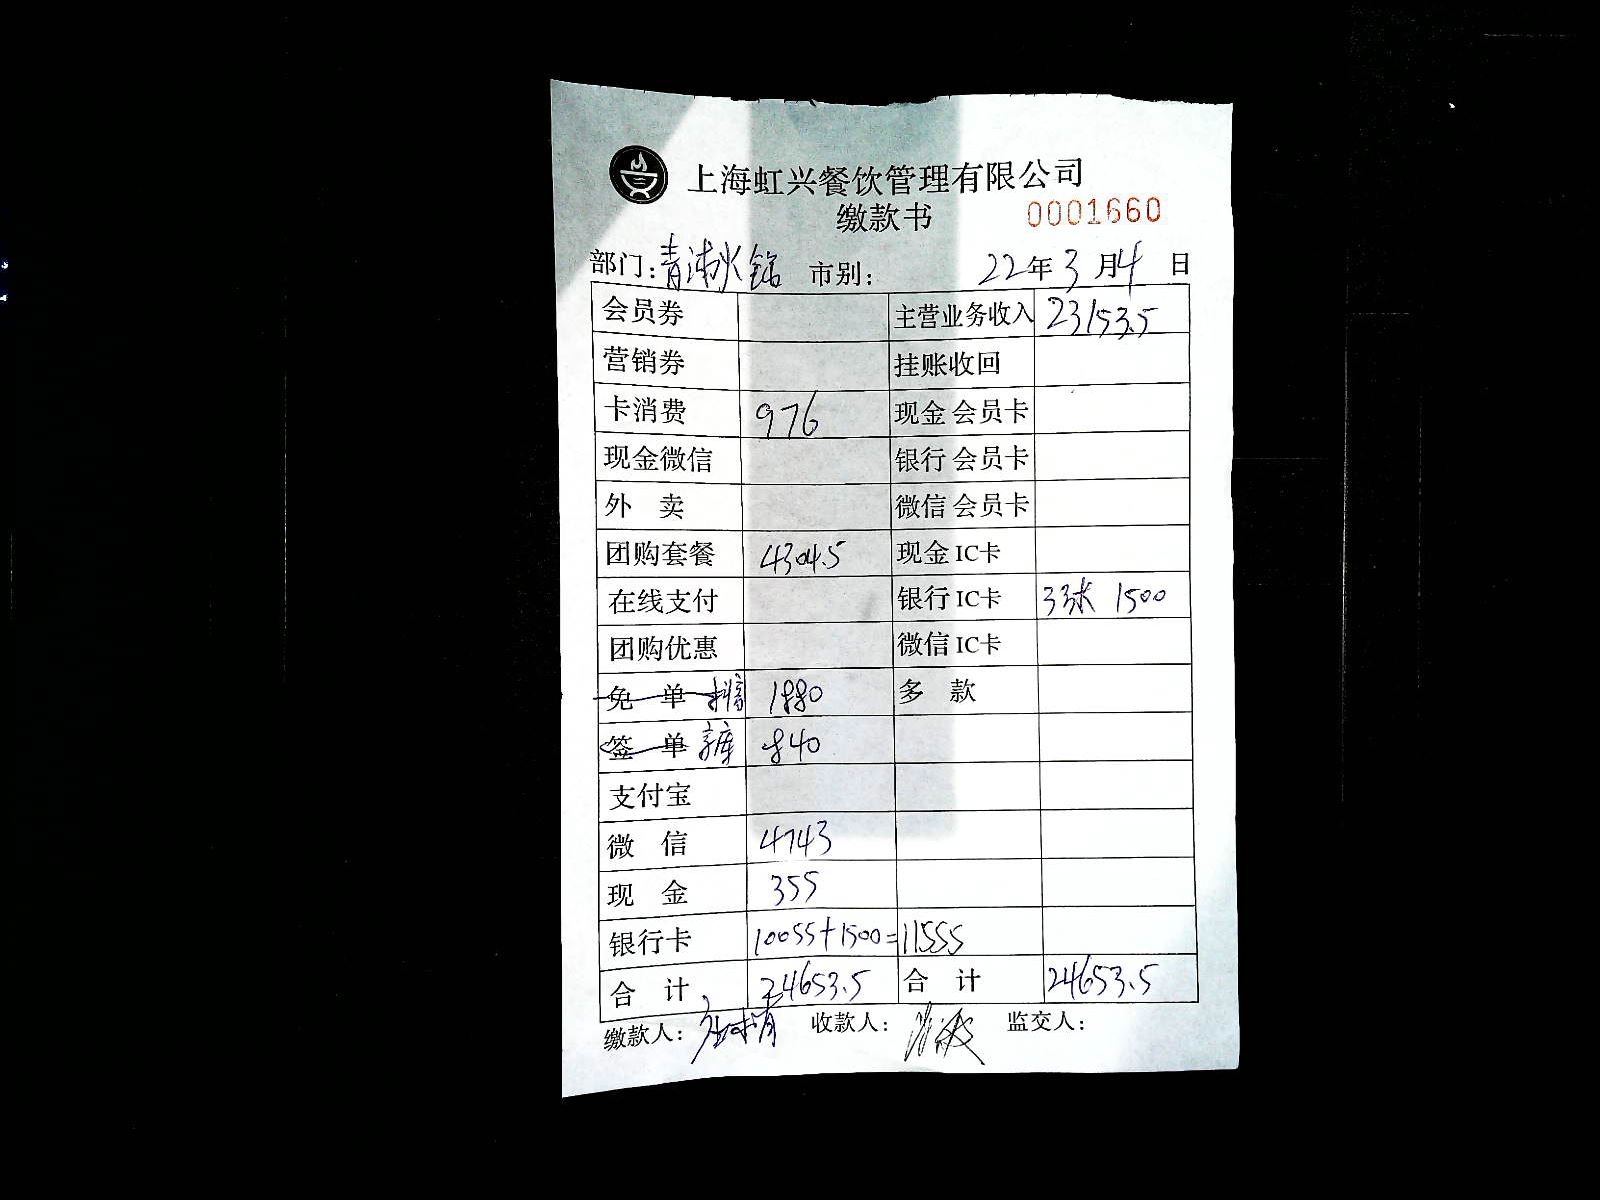 上海虹兴餐饮管理有限公司
缴款书 0001660
部门: 青浦火锅 市别: 22年3月4日
会员券 主营业务收入 23153.5
营销券 挂账收回
卡消费 976 现金 会员卡
现金微信 银行 会员卡
外 卖 微信 会员卡
团购套餐 4304.5 现金 IC卡
在线支付 银行 IC卡 3张 1500
团购优惠 微信 IC卡
免 单 1880 多 款
签 单 840
支付宝
微 信 4743
现 金 355
银行卡 10055+1500=11555
合 计 24653.5 合 计 24653.5
缴款人: 收款人: 监交人: